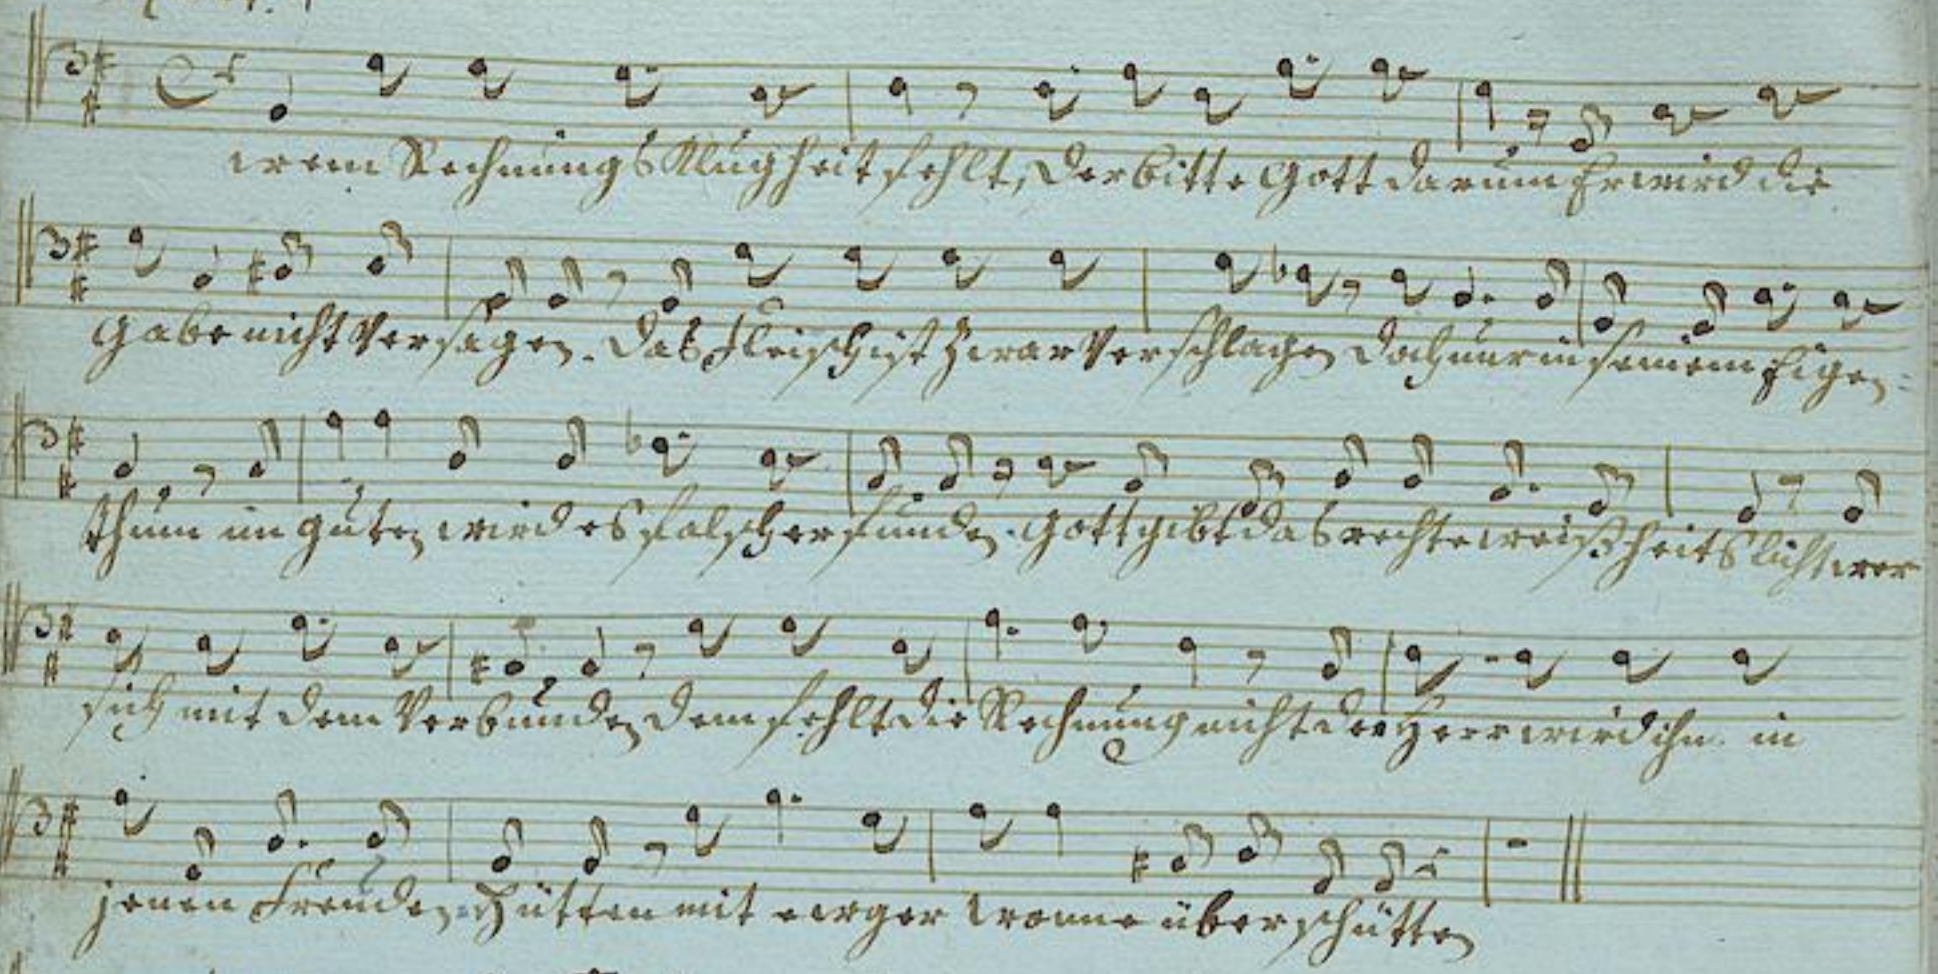 wem Rechnungs Klugheit fehlt, der bitte Gott darum Er wird die
Gabe nicht versagen. das Fleisch ist zwar verschlagen doch nur in seinem Eigen-
thum im guten wird es falsch erfunden. Gott gibt das rechte weißheits licht wer
sich mit dem verbunden dem fehlt die Rechnung nicht der Herr wird ihn in
jenen Freuden-Hütten mit ewger wonne überschütten